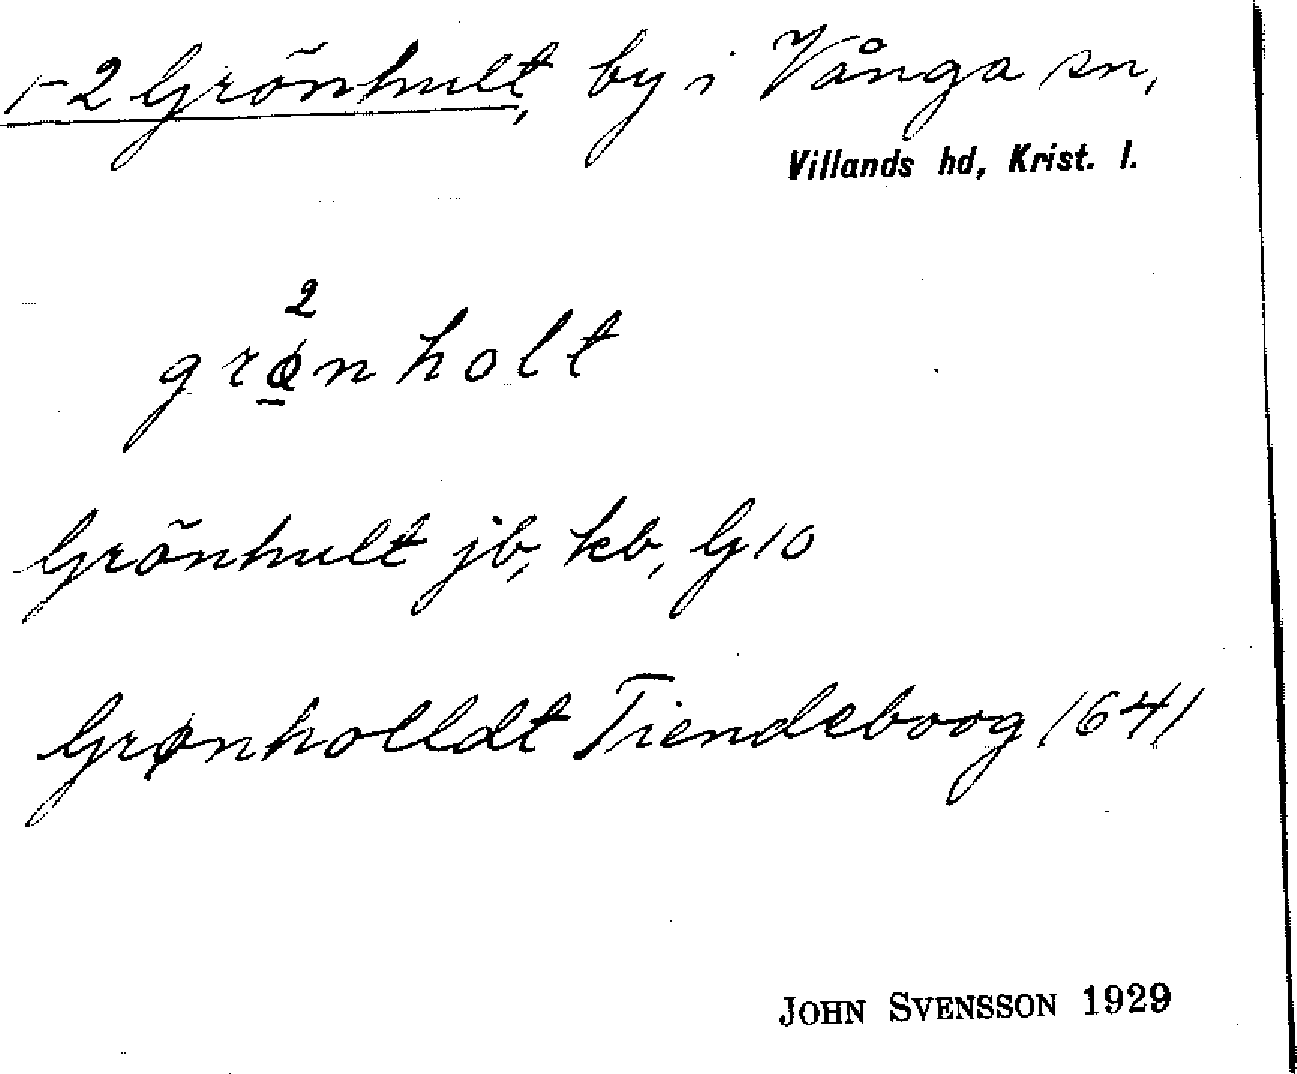 1-2 Grönhult, by i Vånga sn,
Villands hd, Krist. l.
2
grø̱nholt
Grönhult jb, kb, G10
Grønholldt Tiendeboog 1641
JOHN SVENSSON 1929